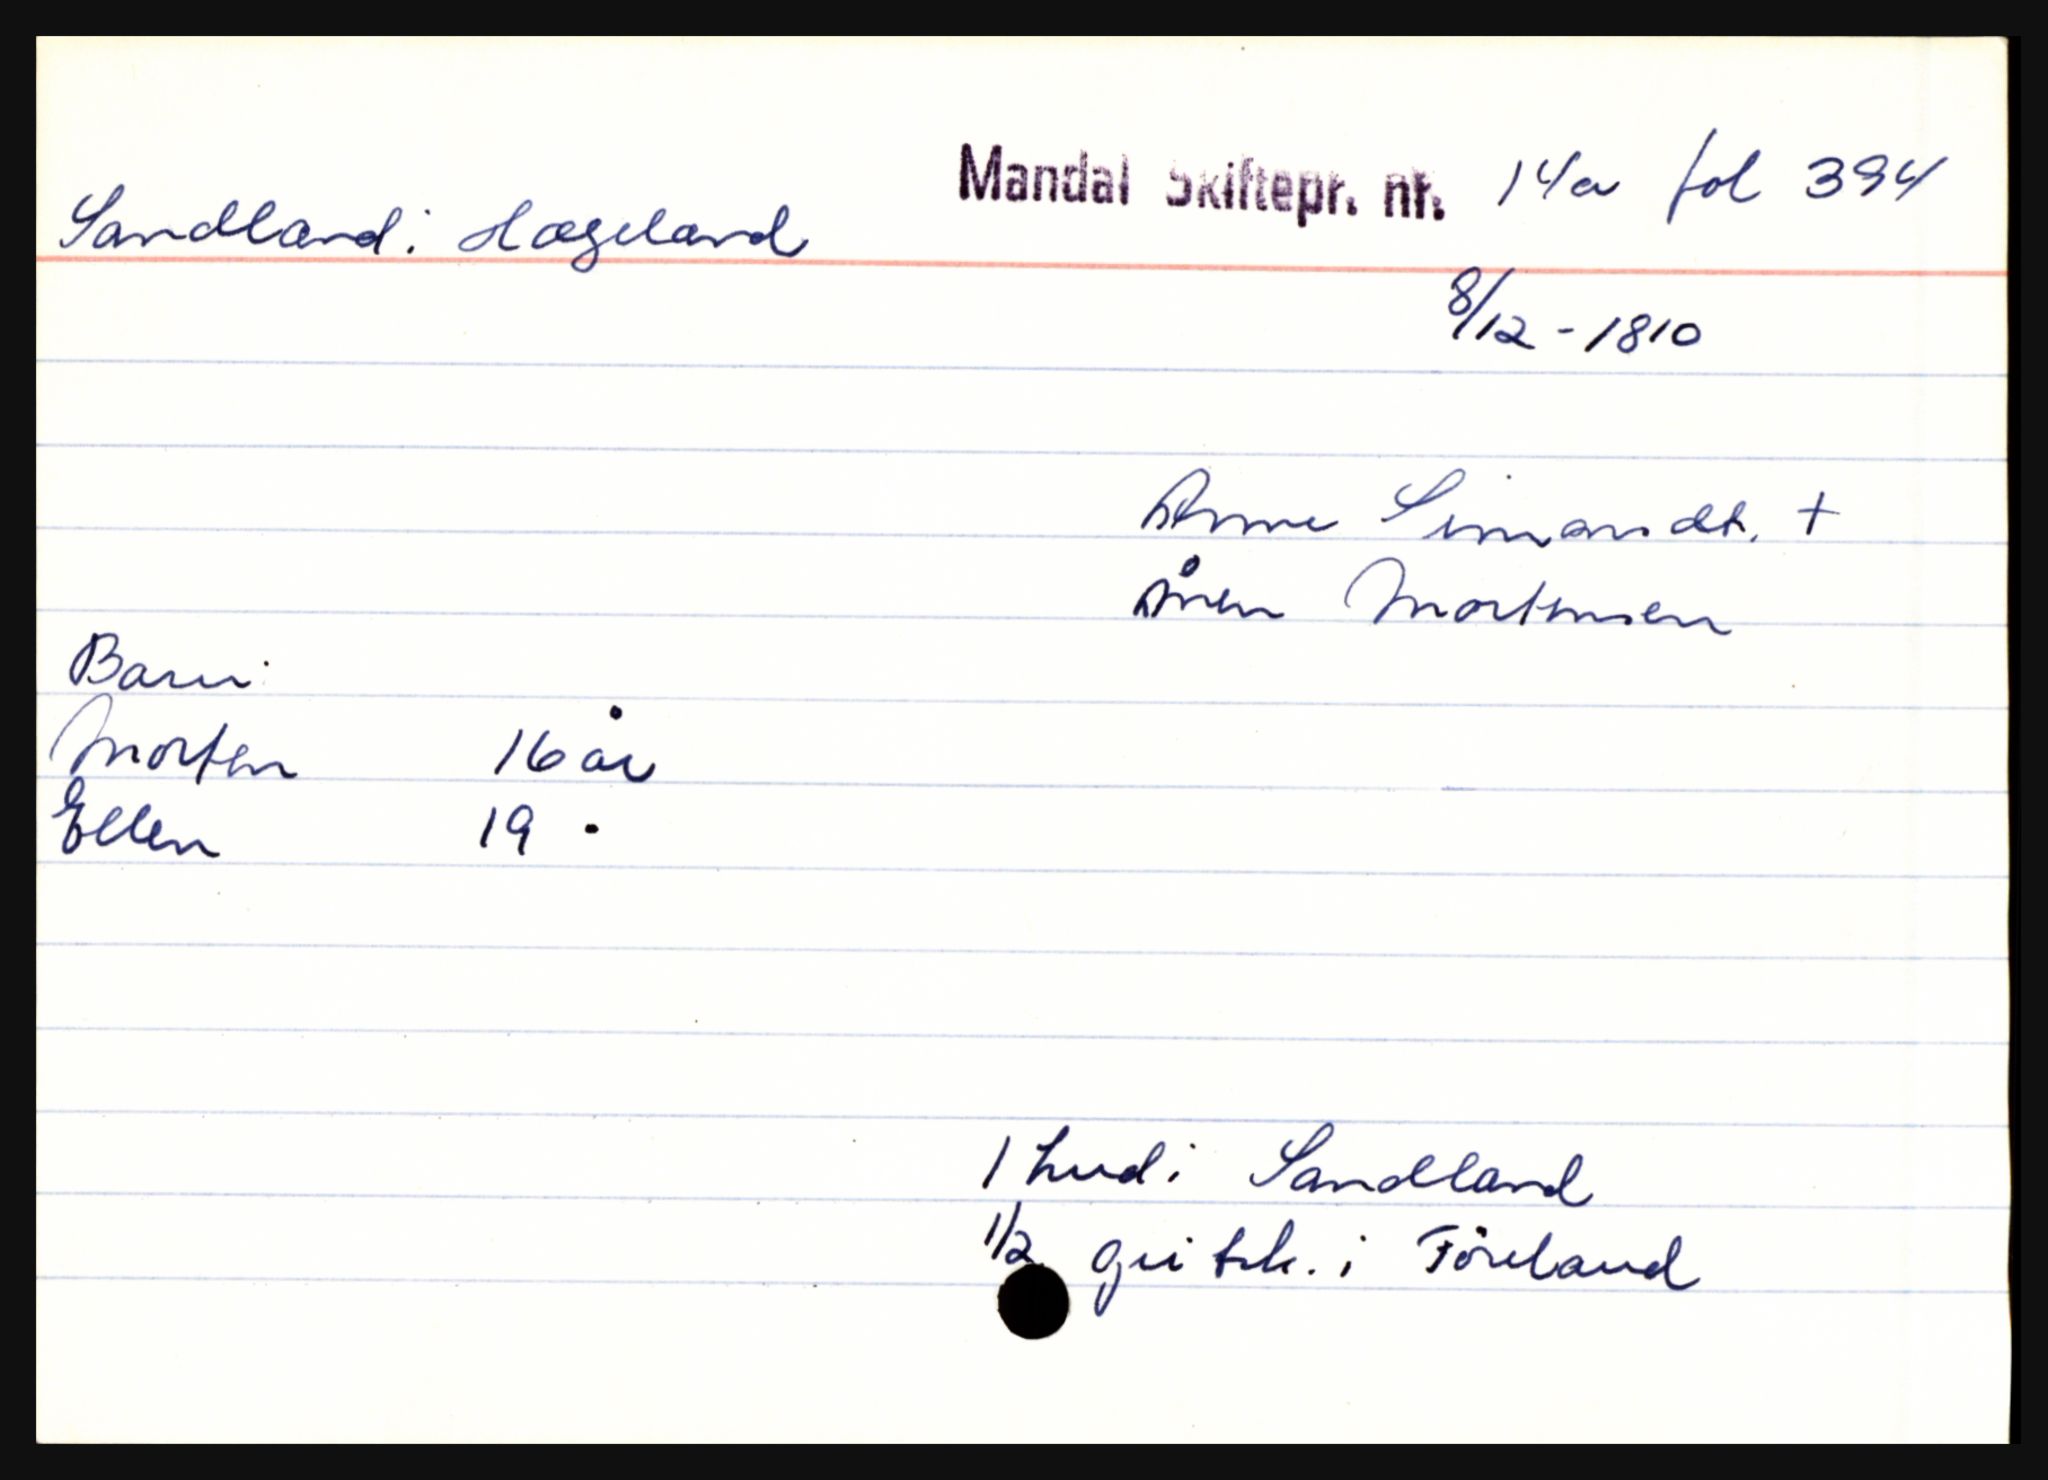 Mandal Skiftepr. nr. 14a fol 394
Sandland i Hægeland
8/12 - 1810
Anne Simonsdt. +
Ånen Mortensen
Barn:
Morten 16 år
Ellen 19 -
1 hud i Sandland
1/2 gvitsk. i Föreland